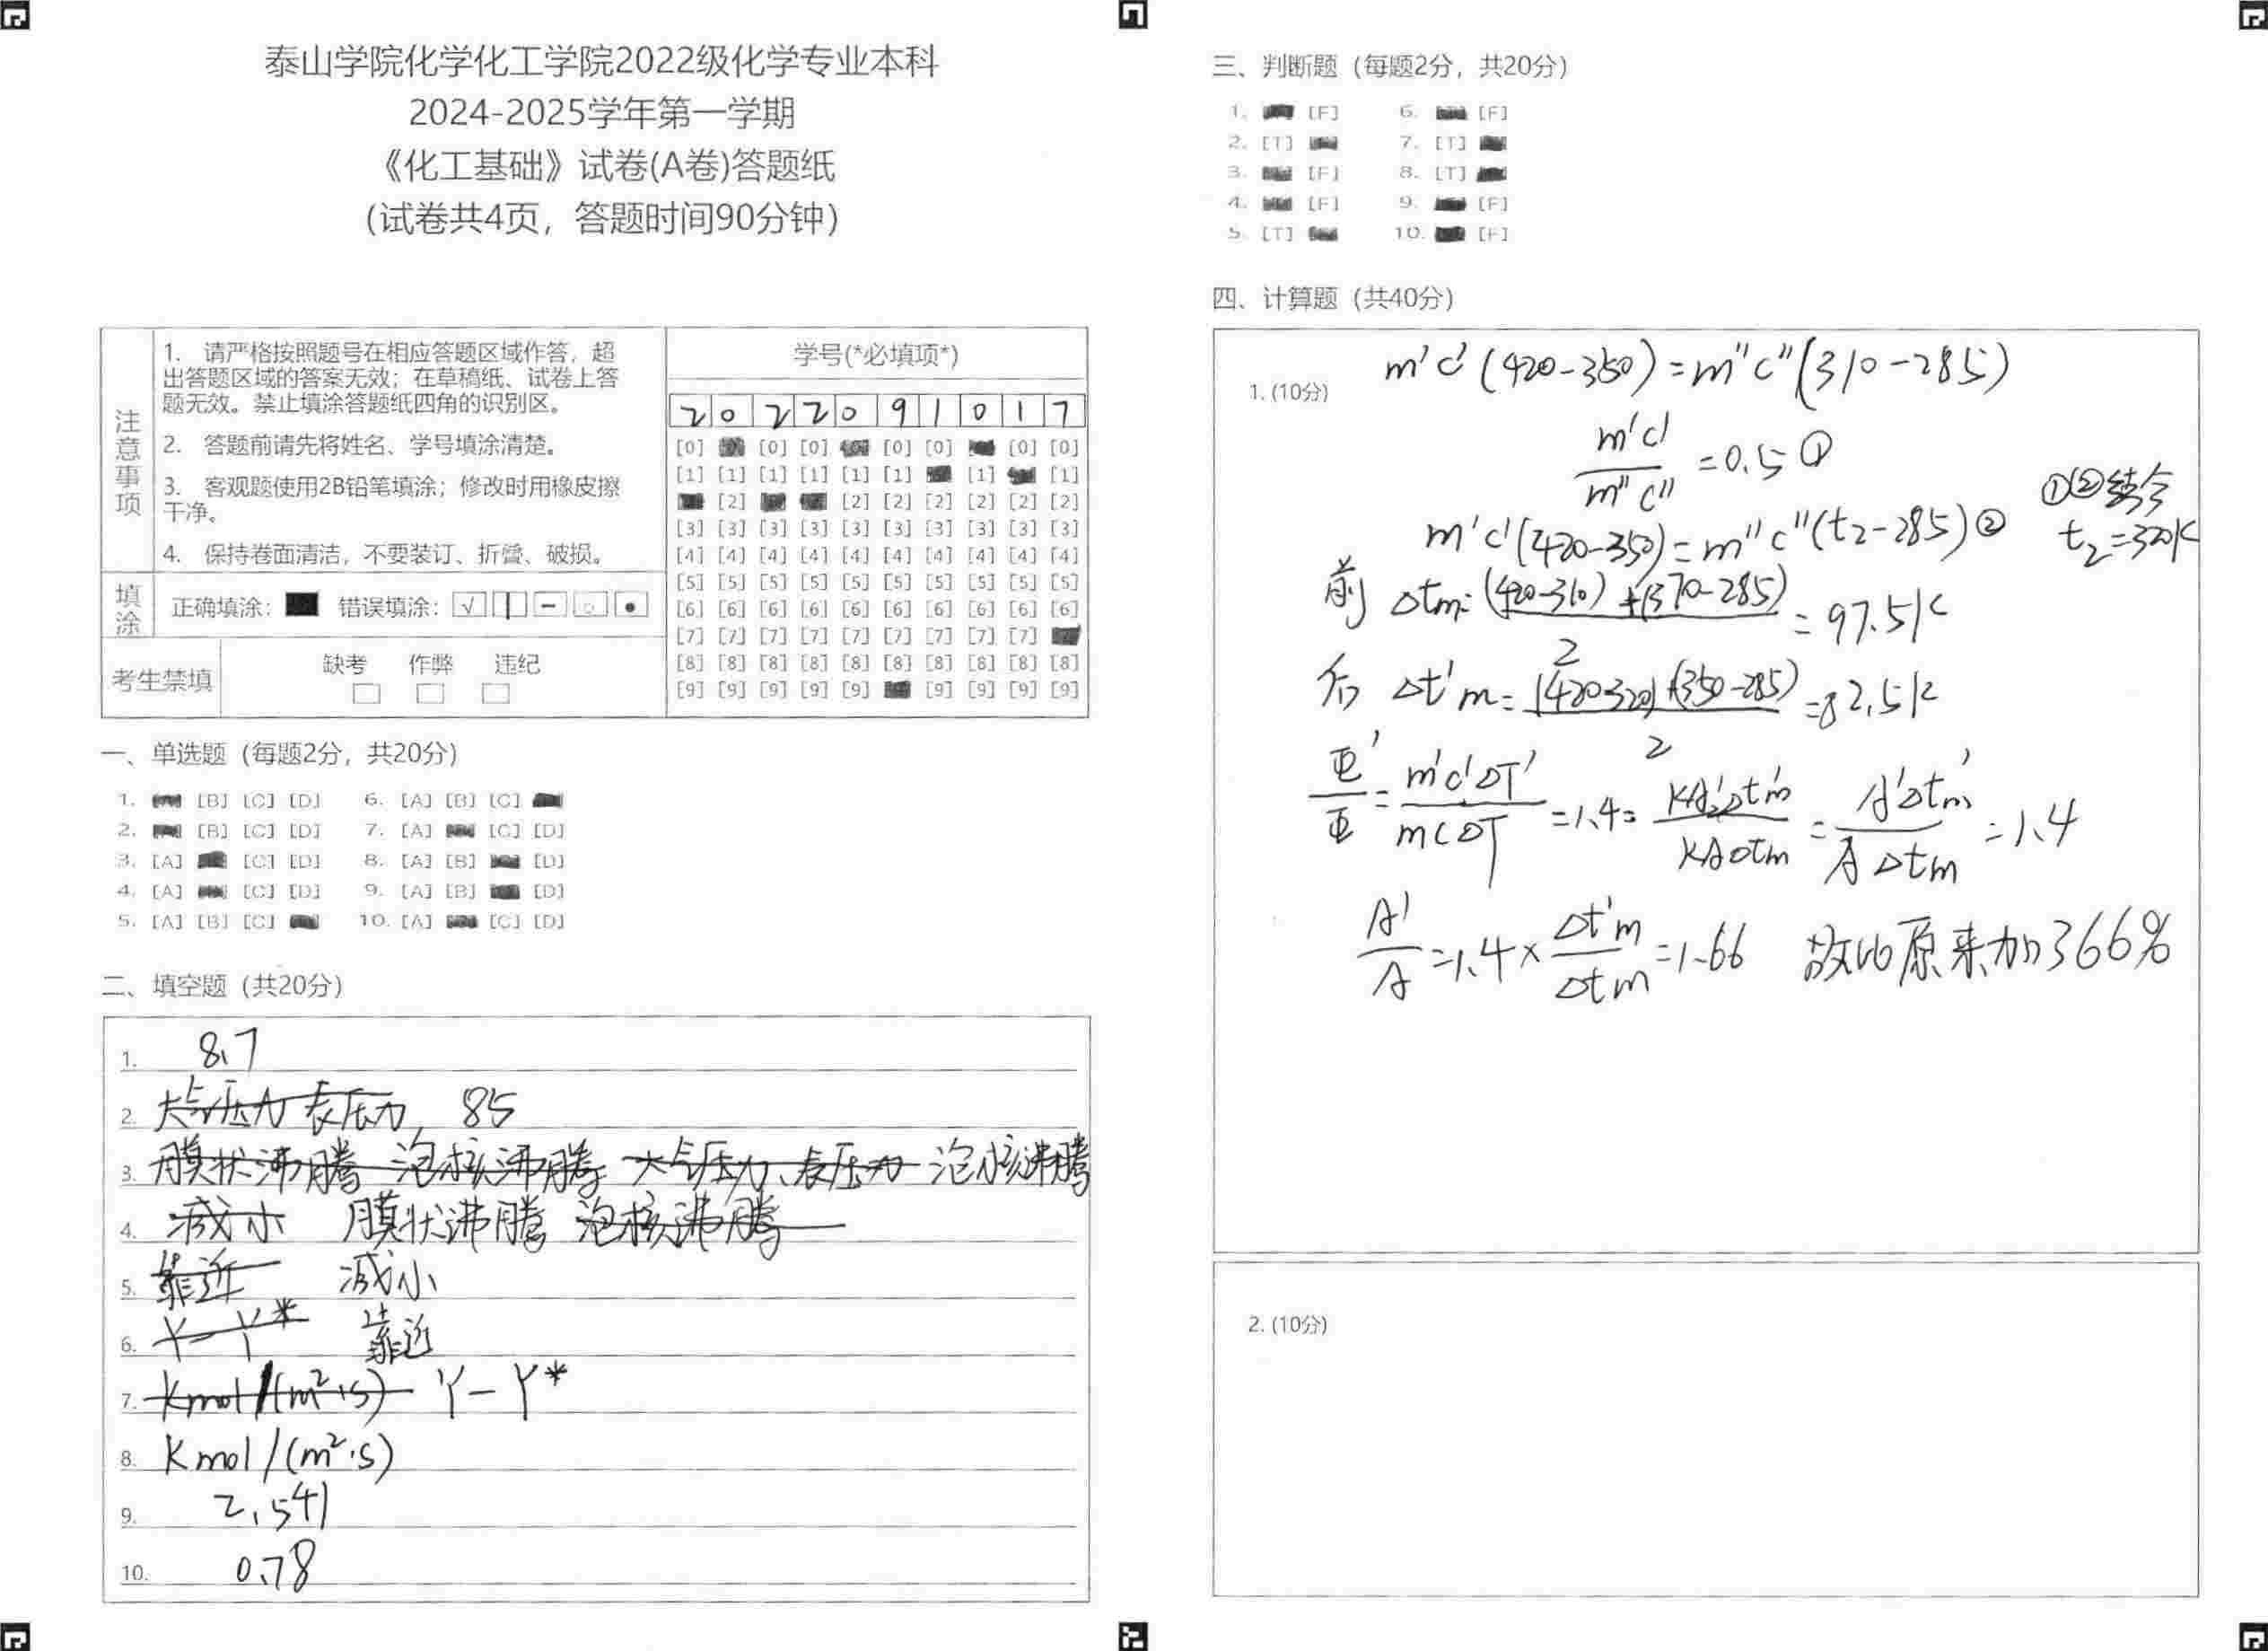 泰山学院化学化工学院2022级化学专业本科
2024-2025学年第一学期
《化工基础》试卷(A卷)答题纸
(试卷共4页，答题时间90分钟)
注意事项
1. 请严格按照题号在相应答题区域作答，超
出答题区域的答案无效；在草稿纸、试卷上答
题无效。禁止填涂答题纸四角的识别区。
2. 答题前请先将姓名、学号填涂清楚。
3. 客观题使用2B铅笔填涂；修改时用橡皮擦
干净。
4. 保持卷面清洁，不要装订、折叠、破损。
填涂 正确填涂： 错误填涂：
考生禁填 缺考 作弊 违纪
学号(*必填项*)
2 0 2 2 0 9 1 0 1 7
[0] [0] [0] [0] [0] [0] [0]
[1] [1] [1] [1] [1] [1] [1] [1]
[2] [2] [2] [2] [2] [2] [2]
[3] [3] [3] [3] [3] [3] [3] [3] [3] [3]
[4] [4] [4] [4] [4] [4] [4] [4] [4] [4]
[5] [5] [5] [5] [5] [5] [5] [5] [5] [5]
[6] [6] [6] [6] [6] [6] [6] [6] [6] [6]
[7] [7] [7] [7] [7] [7] [7] [7] [7]
[8] [8] [8] [8] [8] [8] [8] [8] [8] [8]
[9] [9] [9] [9] [9] [9] [9] [9] [9]
一、单选题（每题2分，共20分）
1. [B] [C] [D] 6. [A] [B] [C]
2. [B] [C] [D] 7. [A] [C] [D]
3. [A] [C] [D] 8. [A] [B] [D]
4. [A] [C] [D] 9. [A] [B] [D]
5. [A] [B] [C] 10. [A] [C] [D]
二、填空题（共20分）
1. 8.7
2. 大气压力 表压力 85
3. 膜状沸腾 泡核沸腾 大气压力、表压力 泡核沸腾
4. 减小 膜状沸腾 泡核沸腾
5. 靠近 减小
6. Y-Y* 靠近
7. Kmol/(m²·s) Y-Y*
8. Kmol/(m²·s)
9. 2.541
10. 0.78
三、判断题（每题2分，共20分）
1. [F] 6. [F]
2. [T] 7. [T]
3. [F] 8. [T]
4. [F] 9. [F]
5. [T] 10. [F]
四、计算题（共40分）
1. (10分) m'c'(420-350)=m''c''(310-285)
m'c'/m''c''=0.5 ①
①②结合
m'c'(420-350)=m''c''(t2-285)②
t2=320K
前 Δtm=(420-310)+(370-285)/2=97.5K
后 Δt'm=(420-320)+(350-285)/2=82.5K
Φ'/Φ=m'c'ΔT'/mCΔT=1.4=KA'Δt'm/KAΔtm=A'Δtm'/AΔtm=1.4
A'/A=1.4×Δt'm/Δtm=1.66 故比原来加366%
2. (10分)